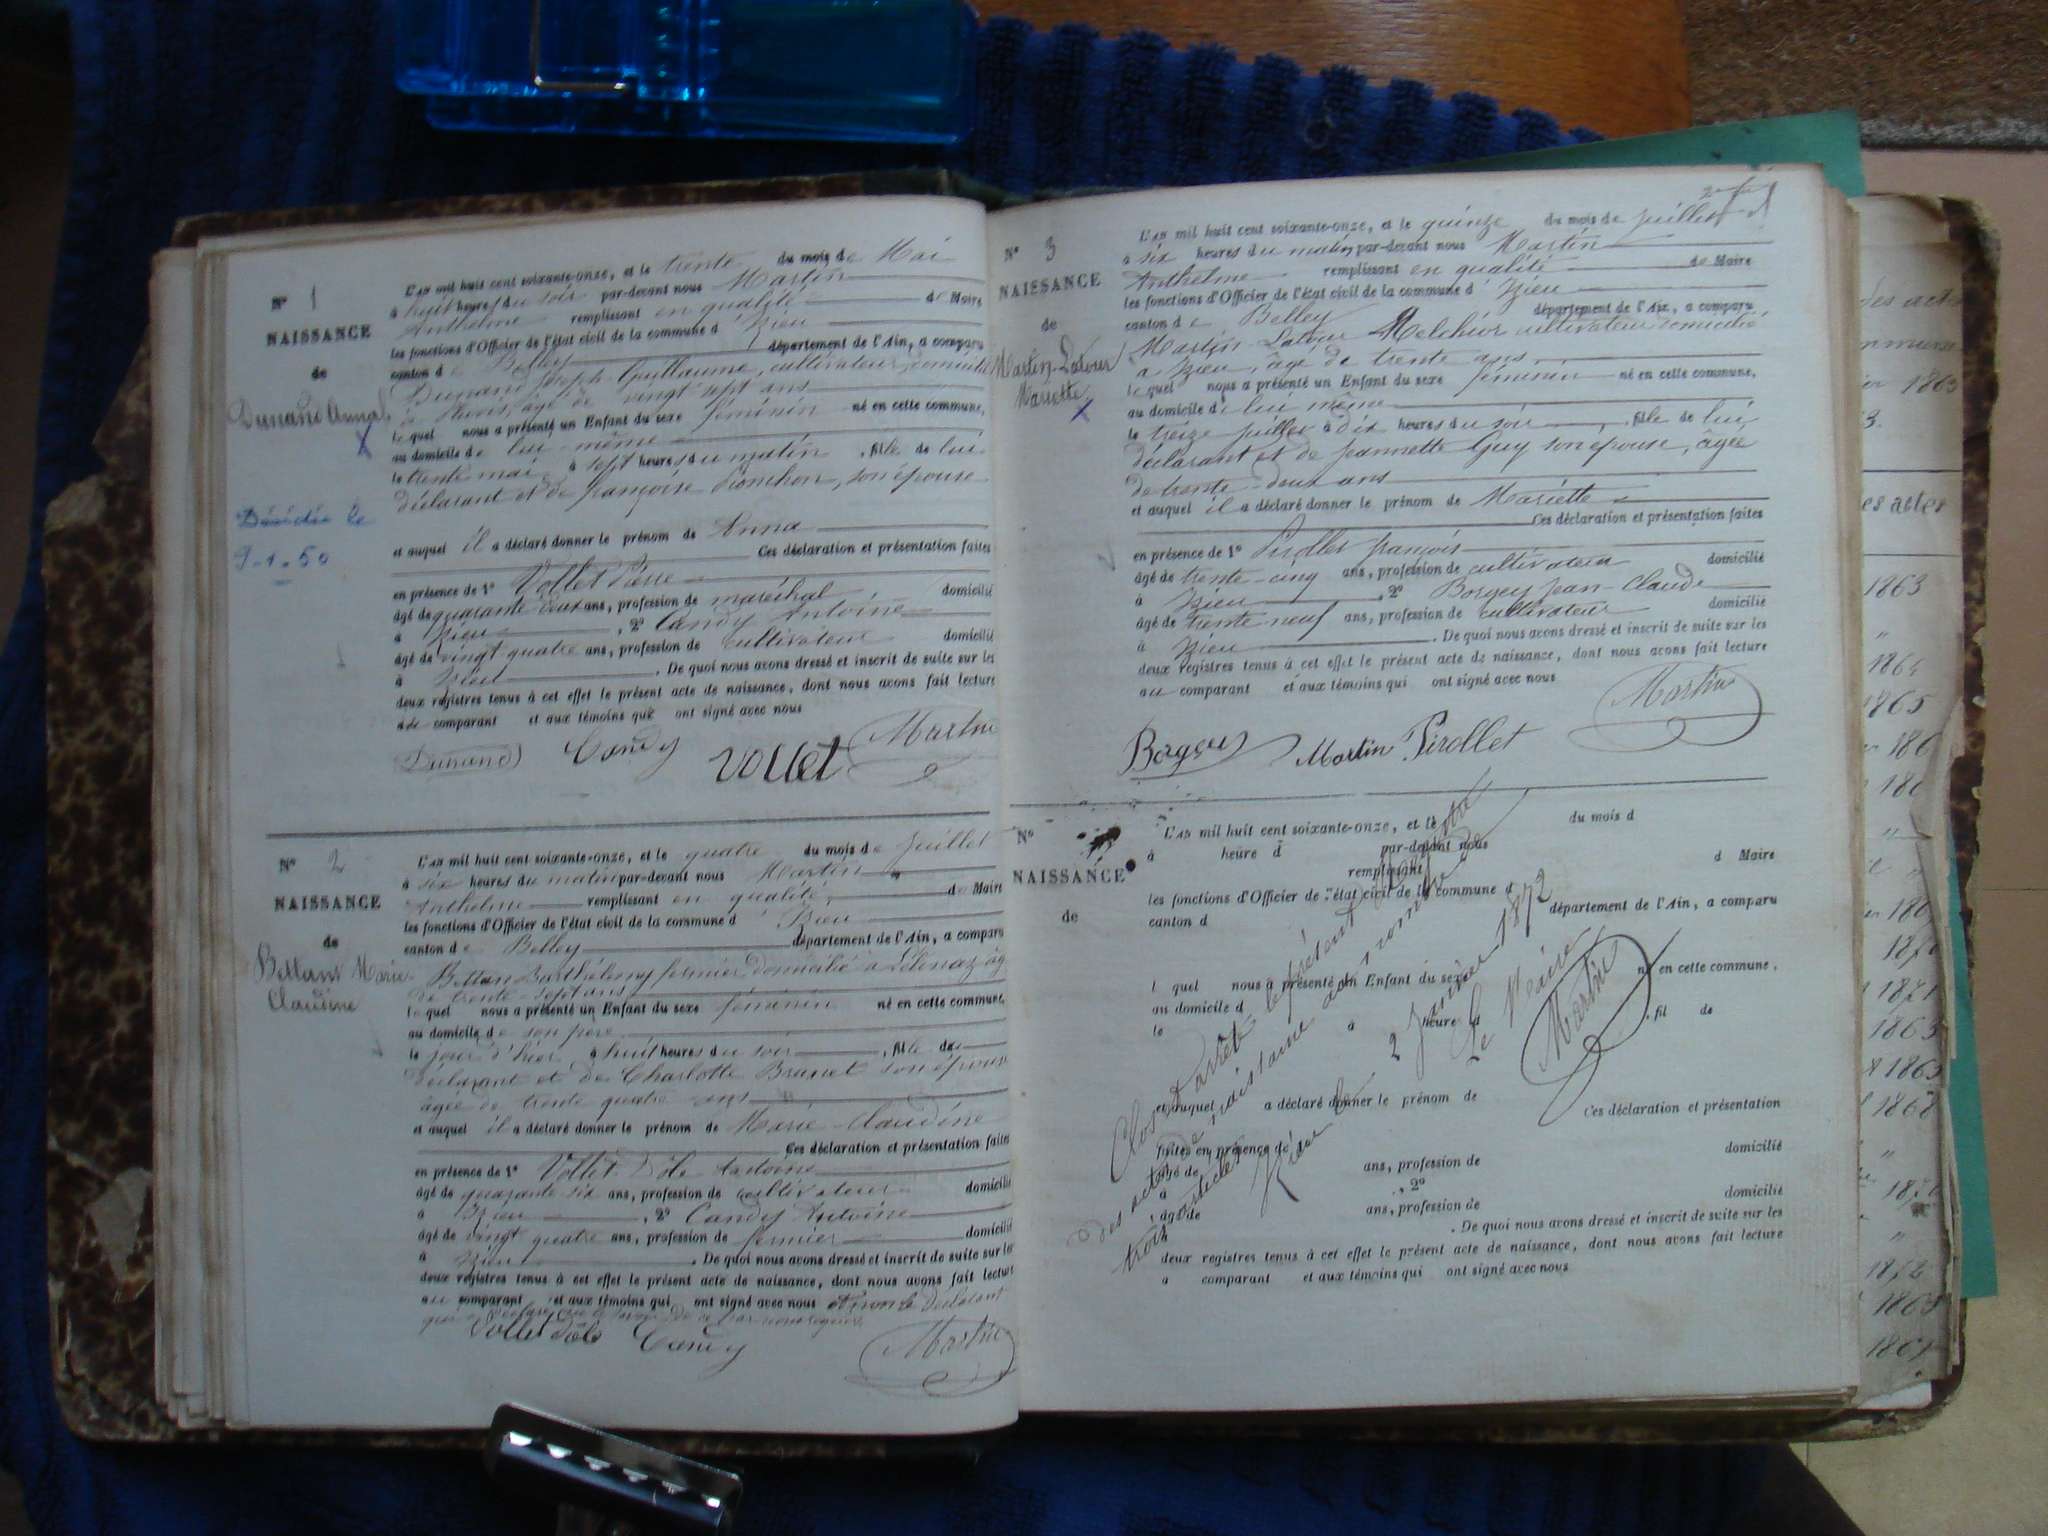 N° 1
NAISSANCE
de
Dunand Anna
X
Décédée le
9-1-50
L'AN mil huit cent soixante-onze, et le trente du mois de Mai
à huit heures du soir par-devant nous Martin
Anthelme remplissant en qualité de Maire
les fonctions d'Officier de l'état civil de la commune d'Izieu
canton de Belley département de l'Ain, a comparu
Dunand Joseph-Guillaume, cultivateur, domicilié
à âgé de vingt sept ans
lequel nous a présenté un Enfant du sexe féminin né en cette commune,
au domicile de lui-même
le trente mai à sept heures du matin, fille de lui
déclarant et de françoise son épouse
et auquel il a déclaré donner le prénom de Anna
Ces déclaration et présentation faites
en présence de 1° Vollet Pierre
âgé de quarante deux ans, profession de maréchal domicilié
à Izieu, 2° Candy Antoine
âgé de vingt quatre ans, profession de cultivateur domicilié
à Izieu. De quoi nous avons dressé et inscrit de suite sur les
deux registres tenus à cet effet le présent acte de naissance, dont nous avons fait lecture
comparant et aux témoins qui ont signé avec nous
Dunand Candy Vollet Martin
N° 2
NAISSANCE
de
Bettant Marie
Claudine
L'AN mil huit cent soixante-onze, et le quatre du mois de Juillet
à six heures du matin par-devant nous Martin
Anthelme remplissant en qualité de Maire
les fonctions d'Officier de l'état civil de la commune d'Izieu
canton de Belley département de l'Ain, a comparu
Bettan Barthélemy fermier domicilié à
de trente-sept ans
lequel nous a présenté un Enfant du sexe féminin né en cette commune,
au domicile de son père
le jour d'hier à huit heures du soir, fille du
déclarant et de Charlotte Brunet son épouse
âgée de trente quatre ans
et auquel il a déclaré donner le prénom de Marie-Claudine
Ces déclaration et présentation faites
en présence de 1° Vollet Antoine
âgé de quarante six ans, profession de cultivateur domicilié
à Izieu, 2° Candy Antoine
âgé de vingt quatre ans, profession de fermier domicilié
à Izieu. De quoi nous avons dressé et inscrit de suite sur les
deux registres tenus à cet effet le présent acte de naissance, dont nous avons fait lecture
au comparant et aux témoins qui ont signé avec nous et non le déclarant
Vollet Candy Martin
N° 3
NAISSANCE
de
Martin-Latour
Mariette
X
L'AN mil huit cent soixante-onze, et le quinze du mois de Juillet
à six heures du matin par-devant nous Martin
Anthelme remplissant en qualité de Maire
les fonctions d'Officier de l'état civil de la commune d'Izieu
canton de Belley département de l'Ain, a comparu
Martin-Latour Melchior cultivateur domicilié
à Izieu, âgé de trente ans
lequel nous a présenté un Enfant du sexe féminin né en cette commune,
au domicile de lui même
le treize juillet à dix heures du soir, fille de lui
déclarant et de Jeannette Guy son épouse, âgée
de trente deux ans
et auquel il a déclaré donner le prénom de Mariette
Ces déclaration et présentation faites
en présence de 1° Pirollet françois
âgé de trente-cinq ans, profession de cultivateur domicilié
à Izieu, 2° Borgey Jean-Claude
âgé de trente neuf ans, profession de cultivateur domicilié
à Izieu. De quoi nous avons dressé et inscrit de suite sur les
deux registres tenus à cet effet le présent acte de naissance, dont nous avons fait lecture
au comparant et aux témoins qui ont signé avec nous
Martin
Borgey Martin Pirollet
N°
NAISSANCE
de
L'AN mil huit cent soixante-onze, et le du mois d
à heure d par-devant nous
remplissant d Maire
les fonctions d'Officier de l'état civil de la commune d
canton d département de l'Ain, a comparu
l quel nous a présenté un Enfant du sexe né en cette commune,
au domicile d
le à heure d, fil de
et auquel a déclaré donner le prénom de
Ces déclaration et présentation
faites en présence de domicilié
âgé de ans, profession de
à, 2°
, âgé de ans, profession de domicilié
. De quoi nous avons dressé et inscrit de suite sur les
deux registres tenus à cet effet le présent acte de naissance, dont nous avons fait lecture
a comparant et aux témoins qui ont signé avec nous
Clos et arrêté le présent registre
des actes de naissance au nombre de
trois articles
Izieu le 2 Janvier 1872
Le Maire
Martin
1863
3.
1863
"
1864
1865
1871
1863
1868
"
1872